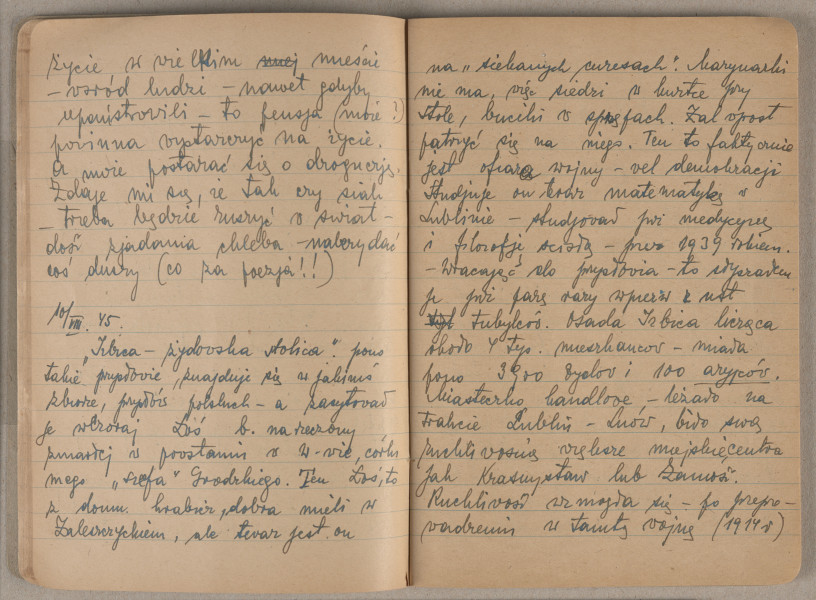 życie w wielkim mieście
– wśród ludzi – nawet gdyby
– to pensja (moie?)
powinna wystarczyć na życie.
a moie postarać się o drogueryę.
Zdaje mi się, że tak czy siak
– trzeba będzie ruszyć w świat –
dość zjadania chleba – nabrydać
coś duszy (co za poezja!!)
10/VIII. 45.
„Izbica – żydowska stolica". pono
takie przysłowie znajduje się w jakimś
zbiorze przysłów polskich – a zacytował
je wczoraj Łoś b. narzeczony
zmarłej w powstaniu w W-wie, córki
mego „szefa" Grodzkiego. Ten Łoś, to
z domu hrabia, dobra mieli w
Zaleszczyckiem, ale teraz jest on
na „siekanych curesach". Marynarki
nie ma, więc siedzi w kurtce przy
stole, buciki w sprzęgach. Żal wprost
patrzyć się na niego. Ten to faktycznie
jest ofiarą wojny – vel demokracji
Studjuje on teraz matematykę w
Lublinie – studjował już medycynę
i filozofję ścisłą – przed 1939 rokiem.
– wracając do przysłowia – to słyszałem
je już parę razy wpierw z ust
tubylców. Osada Izbica licząca
około 4 tys. mieszkańców – miała
pono 3900 żydów i 100 aryjców.
Miasteczko handlowe – leżało na
trakcie Lublin – Lwów, biło swą
ruchliwością większe miejskie centra
jak Krasnystaw lub Zamość.
Ruchliwość wzmogła się – po przepro-
wadzeniu w tamtą wojnę (1914 r)